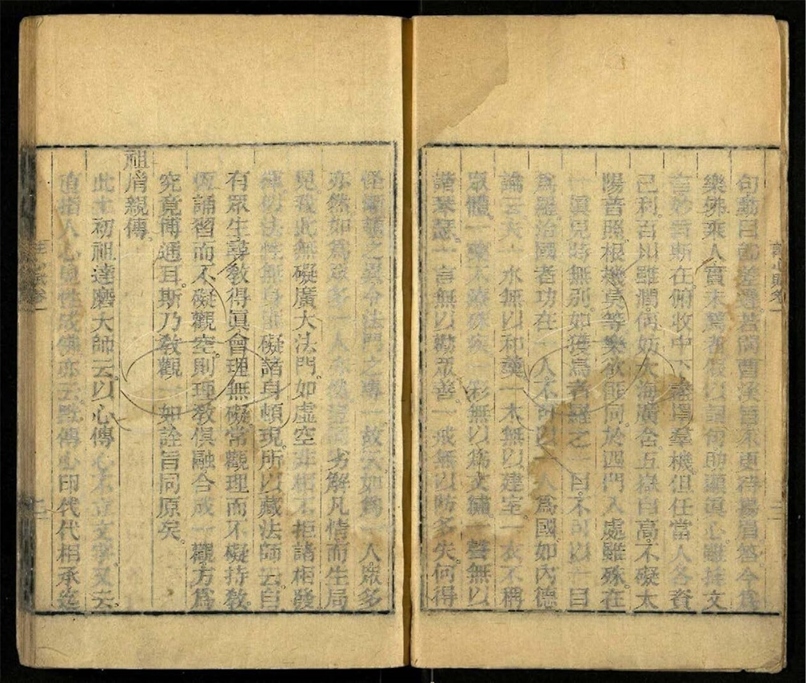 樂佛乘人實未薦者假以宗鏡助顯眞心雖挂文
言妙旨斯在俯收中下盡濟羣機但任當人各資
己利百川雖潤何妨大海廣含五嶽自高不礙太
陽普照根機莫等樂欲匪同於四門入處雖殊在
一眞見時無別如獲鳥者羅之一目不可以一目
爲羅治國者功在一人不可以一人爲國如內德
論云夫一水無以和羹一木無以建室一衣不稱
眾體一藥不療殊疾一彩無以爲文繡一聲無以
諧琴瑟。一言無以勸眾善一戒無以防多失。何得
怪漸頓之異令法門之專一故云如爲一人眾多
亦然如爲眾多一人亦然豈同劣解凡情而生局
見我此無礙廣大法門。如虛空非相不拒諸相發
揮似法性無身匪礙諸身頓現。所以藏法師云。自
有眾生尋敎得眞會理無礙常觀理而不礙持敎
恆誦習而不礙觀空則理敎俱融合成一觀方爲
究竟博通耳。斯乃敎觀一如詮旨同原矣。
祖胤親傳。
此土初祖達磨大師云。以心傳心不立文字又云。
直指人心見性成佛亦云默傳心印代代相承迄